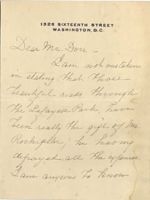 1326 SIXTEENTH STREET
WASHINGTON, D.C.
Dear Mr. Dorr -
I am not mistaken
in stating that those
beautiful roads through
the Lafayette Park have
been really the gift of Mr
Rockefeller, he having
defrayed all the expense
I am anxious to know